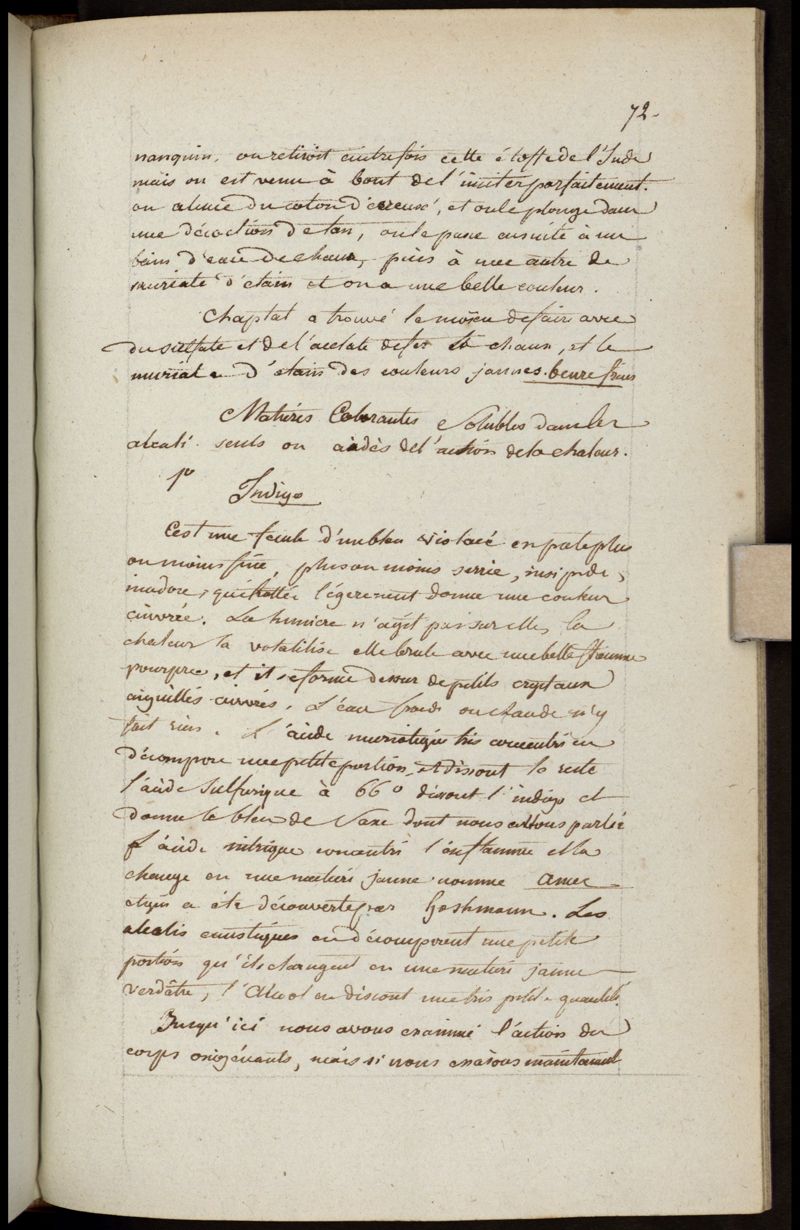 72.
nanquin, on retiroit autrefois cette étoffe de l'Inde
mais on est venu à bout de l'imiter parfaitement.
on alune du coton décreusé, et on le plonge dans
une décoction de tan, on le passe ensuite à un
bain d'eau de chaux, puis à une autre de
muriate d'étain et on a une belle couleur.
Chaptal a trouvé le moïen de faire avec
du sulfate et de l'acetate de fer la chaux, et le
muriate d'étain des couleurs jaunes beure frais
Matières Colorantes Solubles dans les
alcali seuls ou aidès de l'action de la chaleur.
1º
Indigo
C'est une fécule d'un bleu violacé en pate plus
ou moins fine, plus ou moins serrée, insipide,
inodore, qui frottée légerement donne une couleur
cuivrée. La lumiere n'agit pas sur elle, la
chaleur la volatilise elle brule avec une belle flamme
pourpre, et il se forme dessus de petits cristaux
aiguillés cuivrés. L'eau froide ou chaude n'y
fait rien. L'acide muriatique très concentré en
décompose une petite portion, et dissout le reste
l'acide sulfurique à 66º dissout l'indigo et
donne le bleu de Saxe dont nous allons parler
l'acide nitrique concentré l'enflamme et la
change en une matière jaune nommé amer
et qui a été découverte par Hoshmann. Les
alcalis caustiques en décomposent une petite
portion qu'ils changent en une matière jaune
verdâtre, l'alcool en dissout une très petite quantité.
Jusqu'ici nous avons examiné l'action des
corps oxigénants, mais si nous essaions maintenant